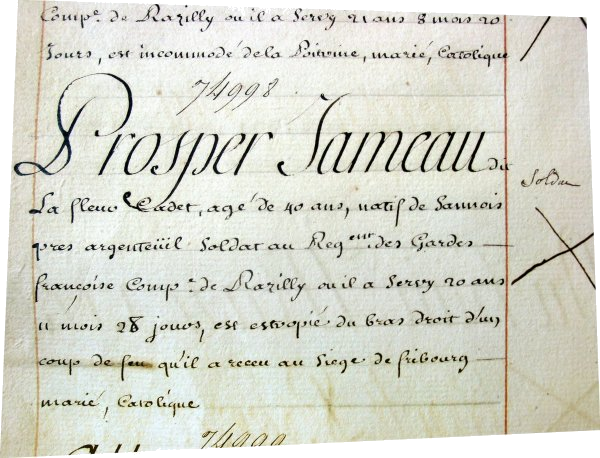 Comp.ᵉ de Razilly ou il a Servy 21 ans 8 mois 20
Jours, est incommodé de la Poitrine, marié, Catolique
74998
Prosper Jameau dit
Soldat
La fleur Cadet, agé de 40 ans, natif de Sannois
pres argenteüil Soldat au Reg.ᵉⁿᵗ des Gardes
françoise Comp.ᵉ de Razilly ou il a Servy 20 ans
11 mois 28 jours, est estropié du bras droit d'un
coup de feu qu'il a receu au Siege de fribourg
marié, Catolique
74999